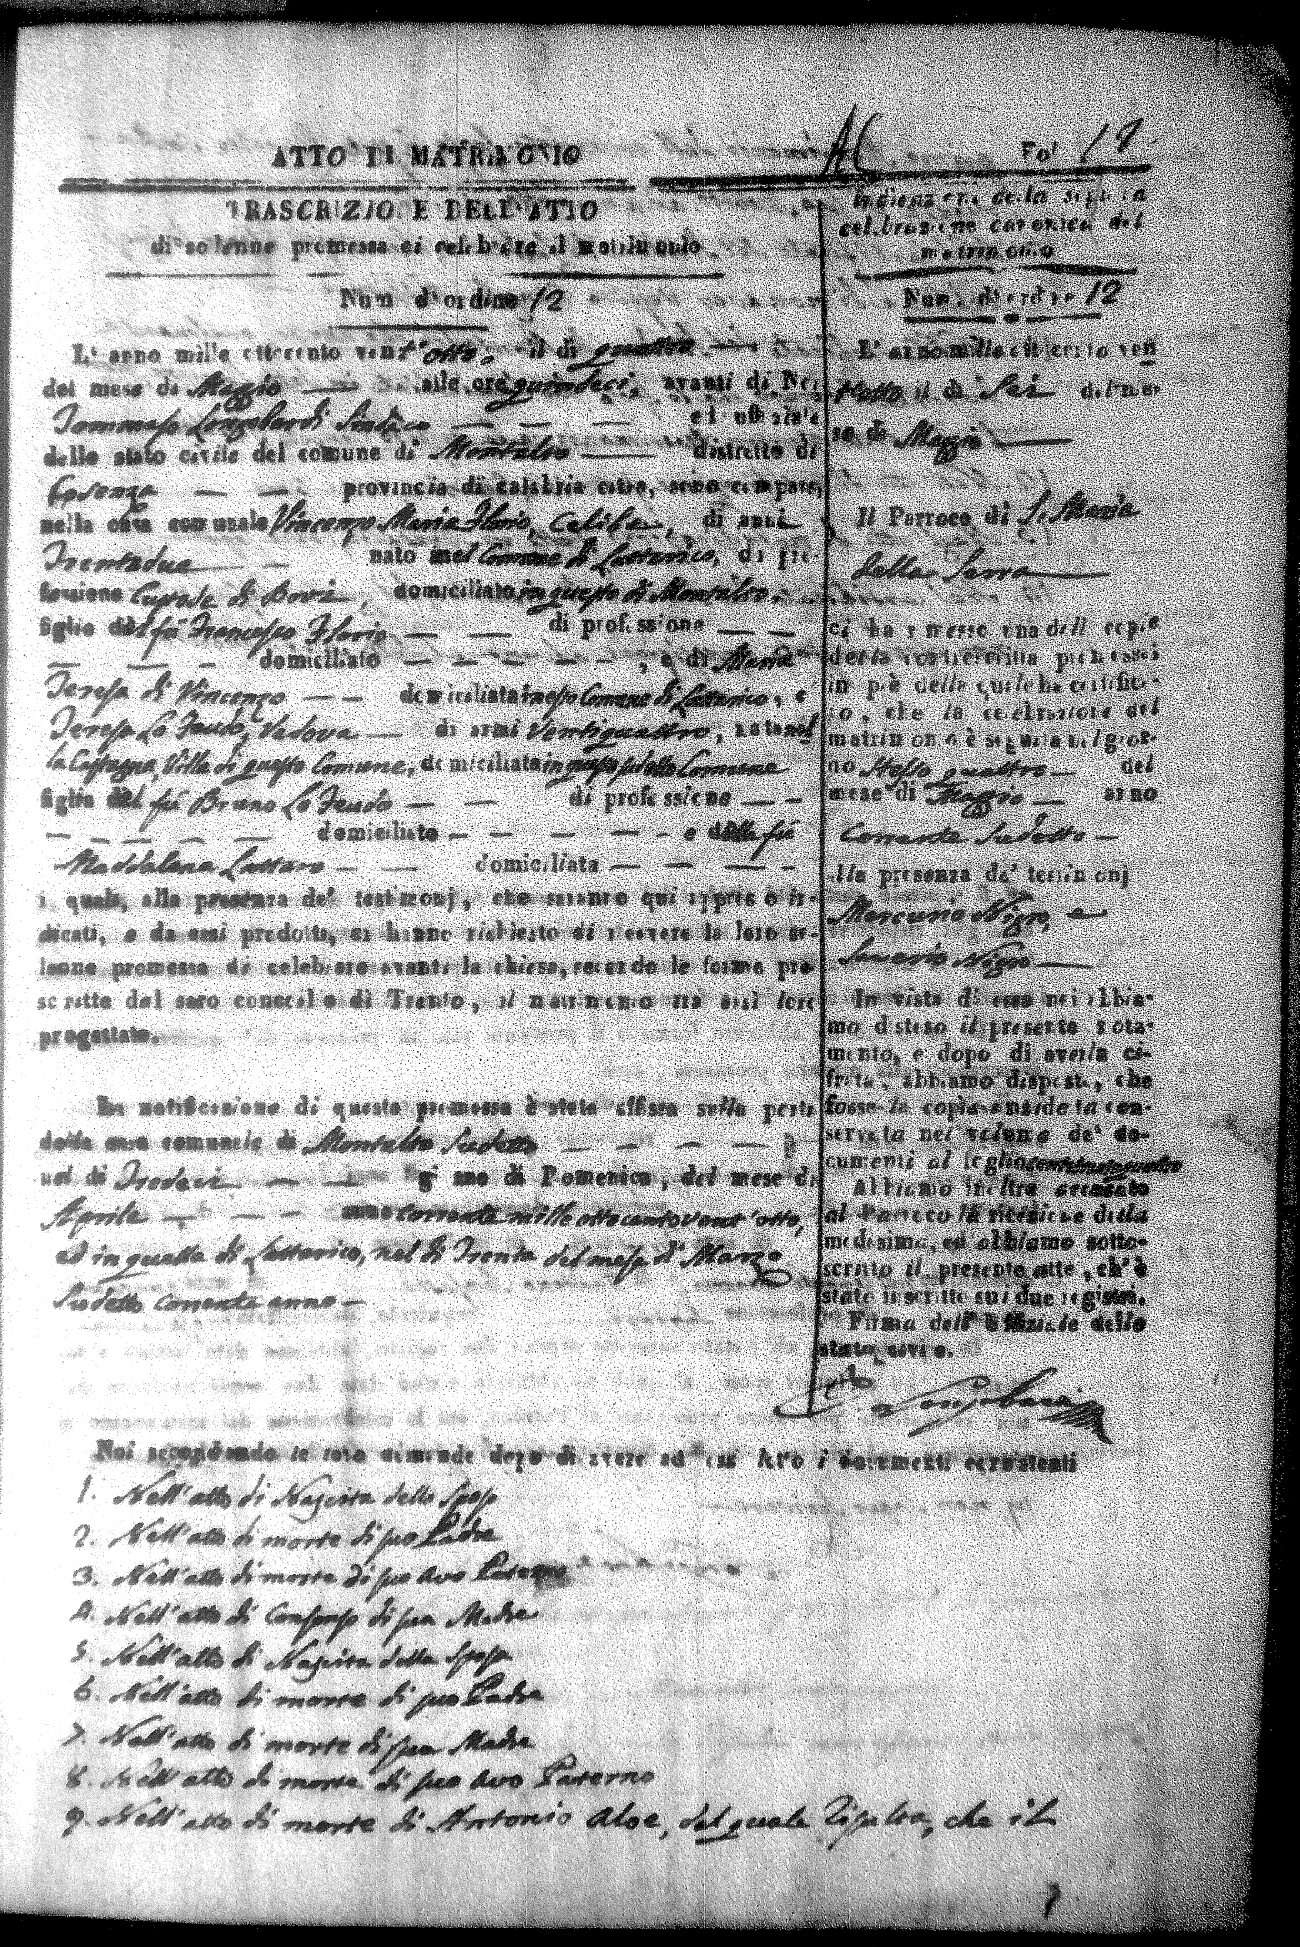 ATTO DI MATRIMONIO
Fol
TRASCRIZIONE DELL'ATTO
di solenne promessa di celebrare il matrimonio
Num d'ordine 12
L'anno mille ottocento vent'otto, il di quattro
del mese di Maggio alle ore quindeci, avanti di Noi
Tommaso Longobardi Sindaco ed uffiziale
dello stato civile del comune di Montalto distretto di
Cosenza provincia di calabria citra, sono comparsi
nella casa comunale Vincenzo Maria Ilario, Celibe, di anni
Trentadue nato nel Comune di Lattarico, di pro-
fessione Custode di Bovi, domiciliato in questo di Montalto
figlio del fù Francesco Ilario di professione
domiciliato, e di Maria
Teresa di Vincenzo domiciliata in esso Comune di Lattarico, e
Teresa Lo Feudo, Vedova di anni Ventiquattro, nata nel
la Castagna, Villa di questo Comune, domiciliata in questo sudetto Comune
figlia del fù Bruno Lo Feudo di professione
domiciliato e della fù
Maddalena Lattaro domiciliata
i quali, alla presenza de' testimonj, che saranno qui appresso in-
dicati, e da essi prodotti, ci hanno richiesto di ricevere la loro so-
lenne promessa di celebrare avanti la chiesa, secondo le forme pre
scritte dal sacro concilio di Trento, il matrimonio tra essi loro
progettato.
La notificazione di questa promessa è stata affissa sulla porta
della casa comunale di Montalto sudetto
nel di Tredeci giorno di Domenica, del mese di
Aprile anno corrente mille ottocento vent'otto,
ed in quella di Lattarico, nel di Trenta del mese di Marzo
sudetto corrente anno
Indicazione della seguita
celebrazione canonica del
matrimonio
Num. d'ordine 12
L'anno mille ottocento ven
t'otto il di Sei del me-
se di Maggio
Il Parroco di S. Maria
della Serra
ci ha rimesso una delle copie
della controscritta promessa
in piè della quale ha certifica-
to, che la celebrazione del
matrimonio è seguita nel gior-
no stesso quattro del
mese di Maggio anno
corrente sudetto
alla presenza de' testimonj
Mercurio Nigro, e
Saverio Nigro
In vista di essa noi abbia-
mo disteso il presente nota-
mento, e dopo di averla ci-
frata, abbiamo disposto, che
fosse la copia ansidetta con-
servata nel volume de' do-
cumenti al foglio
Abbiamo inoltre accusato
al Parroco la ricezione della
medesima, ed abbiamo sotto-
scritto il presente atto, ch'è
stato inscritto sui due registri.
Firma dell'uffiziale dello
stato civile.
Longobardi
Noi secondando le loro dimande dopo di avere ad essi letto i documenti consistenti
1. Nell'atto di Nascita dello Sposo
2. Nell'atto di morte di suo Padre
3. Nell'atto di morte di suo Avo Paterno
4. Nell'atto di Consenso di sua Madre
5. Nell'atto di Nascita della Sposa
6. Nell'atto di morte di suo Padre
7. Nell'atto di morte di sua Madre
8. Nell'atto di morte di suo Avo Paterno
9. Nell'atto di morte di Antonio Aloe, dal quale risulta, che il